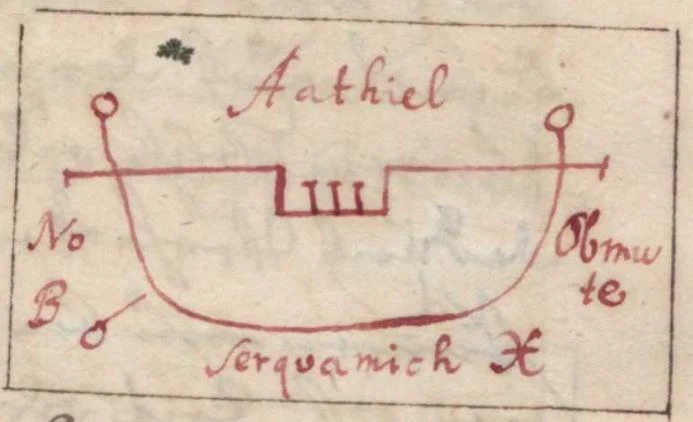 Aathiel
No
Obmu
te
B
Serquamich